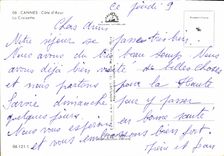 06 - CANNES - Côte d'Azur
La Croisette
Ce jeudi 9
Chers amis
Notre séjour se passe très bien.
Nous avons du très beau temps. Nous
avons déjà bien visité de belles choses
et nous partons pour la Haute
Savoie dimanche pour y passer
quelques jours.
Nous vous espérons en bonne santé
et vous embrassons bien fort
06.121.1